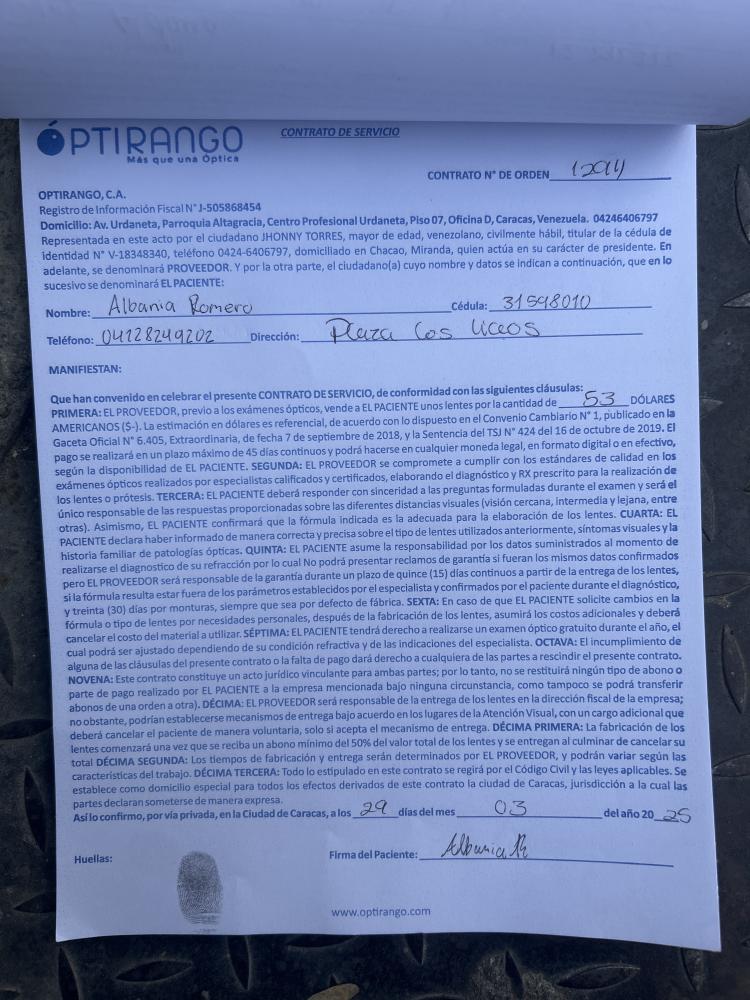 ÓPTIRANGO
Más que una Óptica
CONTRATO DE SERVICIO
CONTRATO N° DE ORDEN 12914
OPTIRANGO, C.A.
Registro de Información Fiscal N° J-505868454
Domicilio: Av. Urdaneta, Parroquia Altagracia, Centro Profesional Urdaneta, Piso 07, Oficina D, Caracas, Venezuela. 04246406797
Representada en este acto por el ciudadano JHONNY TORRES, mayor de edad, venezolano, civilmente hábil, titular de la cédula de
identidad N° V-18348340, teléfono 0424-6406797, domiciliado en Chacao, Miranda, quien actúa en su carácter de presidente. En
adelante, se denominará PROVEEDOR. Y por la otra parte, el ciudadano(a) cuyo nombre y datos se indican a continuación, que en lo
sucesivo se denominará EL PACIENTE:
Nombre: Albania Romero Cédula: 31598010
Teléfono: 04128249202 Dirección: Plaza los liceos
MANIFIESTAN:
Que han convenido en celebrar el presente CONTRATO DE SERVICIO, de conformidad con las siguientes cláusulas:
PRIMERA: EL PROVEEDOR, previo a los exámenes ópticos, vende a EL PACIENTE unos lentes por la cantidad de 53 DÓLARES
AMERICANOS ($-). La estimación en dólares es referencial, de acuerdo con lo dispuesto en el Convenio Cambiario N° 1, publicado en la
Gaceta Oficial N° 6.405, Extraordinaria, de fecha 7 de septiembre de 2018, y la Sentencia del TSJ N° 424 del 16 de octubre de 2019. El
pago se realizará en un plazo máximo de 45 días continuos y podrá hacerse en cualquier moneda legal, en formato digital o en efectivo,
según la disponibilidad de EL PACIENTE. SEGUNDA: EL PROVEEDOR se compromete a cumplir con los estándares de calidad en los
exámenes ópticos realizados por especialistas calificados y certificados, elaborando el diagnóstico y RX prescrito para la realización de
los lentes o prótesis. TERCERA: EL PACIENTE deberá responder con sinceridad a las preguntas formuladas durante el examen y será el
único responsable de las respuestas proporcionadas sobre las diferentes distancias visuales (visión cercana, intermedia y lejana, entre
otras). Asimismo, EL PACIENTE confirmará que la fórmula indicada es la adecuada para la elaboración de los lentes. CUARTA: EL
PACIENTE declara haber informado de manera correcta y precisa sobre el tipo de lentes utilizados anteriormente, síntomas visuales y la
historia familiar de patologías ópticas. QUINTA: EL PACIENTE asume la responsabilidad por los datos suministrados al momento de
realizarse el diagnóstico de su refracción por lo cual No podrá presentar reclamos de garantía si fueran los mismos datos confirmados
pero EL PROVEEDOR será responsable de la garantía durante un plazo de quince (15) días continuos a partir de la entrega de los lentes,
si la fórmula resulta estar fuera de los parámetros establecidos por el especialista y confirmados por el paciente durante el diagnóstico,
y treinta (30) días por monturas, siempre que sea por defecto de fábrica. SEXTA: En caso de que EL PACIENTE solicite cambios en la
fórmula o tipo de lentes por necesidades personales, después de la fabricación de los lentes, asumirá los costos adicionales y deberá
cancelar el costo del material a utilizar. SÉPTIMA: EL PACIENTE tendrá derecho a realizarse un examen óptico gratuito durante el año, el
cual podrá ser ajustado dependiendo de su condición refractiva y de las indicaciones del especialista. OCTAVA: El incumplimiento de
alguna de las cláusulas del presente contrato o la falta de pago dará derecho a cualquiera de las partes a rescindir el presente contrato.
NOVENA: Este contrato constituye un acto jurídico vinculante para ambas partes; por lo tanto, no se restituirá ningún tipo de abono o
parte de pago realizado por EL PACIENTE a la empresa mencionada bajo ninguna circunstancia, como tampoco se podrá transferir
abonos de una orden a otra). DÉCIMA: EL PROVEEDOR será responsable de la entrega de los lentes en la dirección fiscal de la empresa;
no obstante, podrían establecerse mecanismos de entrega bajo acuerdo en los lugares de la Atención Visual, con un cargo adicional que
deberá cancelar el paciente de manera voluntaria, solo si acepta el mecanismo de entrega. DÉCIMA PRIMERA: La fabricación de los
lentes comenzará una vez que se reciba un abono mínimo del 50% del valor total de los lentes y se entregan al culminar de cancelar su
total DÉCIMA SEGUNDA: Los tiempos de fabricación y entrega serán determinados por EL PROVEEDOR, y podrán variar según las
características del trabajo. DÉCIMA TERCERA: Todo lo estipulado en este contrato se regirá por el Código Civil y las leyes aplicables. Se
establece como domicilio especial para todos los efectos derivados de este contrato la ciudad de Caracas, jurisdicción a la cual las
partes declaran someterse de manera expresa.
Así lo confirmo, por vía privada, en la Ciudad de Caracas, a los 29 días del mes 03 del año 20 25
Huellas: Firma del Paciente: Albania R
www.optirango.com